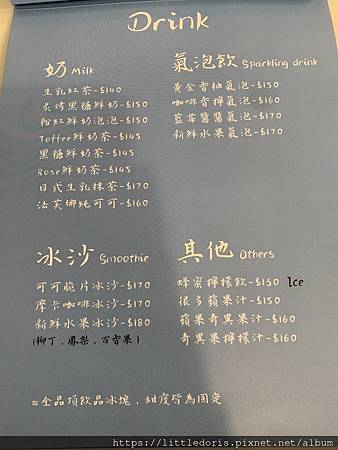 Drink
奶 Milk
生乳紅茶-$140
炙烤黑糖鮮奶-$150
粉紅鮮奶泡泡-$150
Toffee鮮奶茶-$145
黑糖鮮奶茶-$145
Rose鮮奶茶-$145
日式生乳抹茶-$170
法芙娜純可可-$160
氣泡飲 Sparkling drink
黃金香柚氣泡-$150
咖啡香檸氣泡-$160
藍莓醬醬氣泡-$170
新鮮水果氣泡-$170
冰沙 Smoothie
可可脆片冰沙-$170
摩卡咖啡冰沙-$170
新鮮水果冰沙-$180
(柳丁,鳳梨,百香果)
其他 Others
蜂蜜檸檬飲-$130 Ice
很多蘋果汁-$150
蘋果奇異果汁-$160
奇異果檸檬汁-$160
※全品項飲品冰塊,甜度皆為固定
https://littledoris.pixnet.net/album